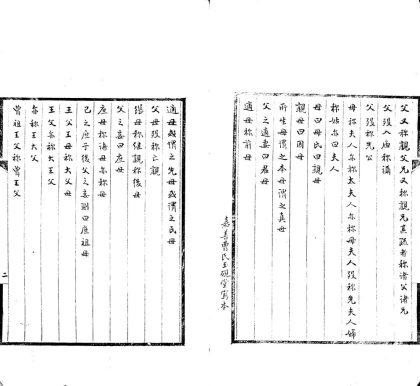 父又称親父兄又称親兄真疏者称諸父諸兄
父没入廟称禰
父没称先公
母称夫人亦称太夫人亦称母夫人没称先夫人婦
称姑亦曰夫人
母曰母氏曰親母
親母曰因母
所生母謂之本母謂之真母
父之適妻曰君母
適母称前母
嘉善曹氏玉硯堂寫本
適母或謂之先母或謂之民母
父母没称亡親
繼母称繼親称後母
父之妾曰庶母
庶母称諸母亦称母
己之庶子後父之妾謂曰庶祖母
王父王母称大父母
王父亦称大王父
亦称王大父
曾祖王父称曾王父
二